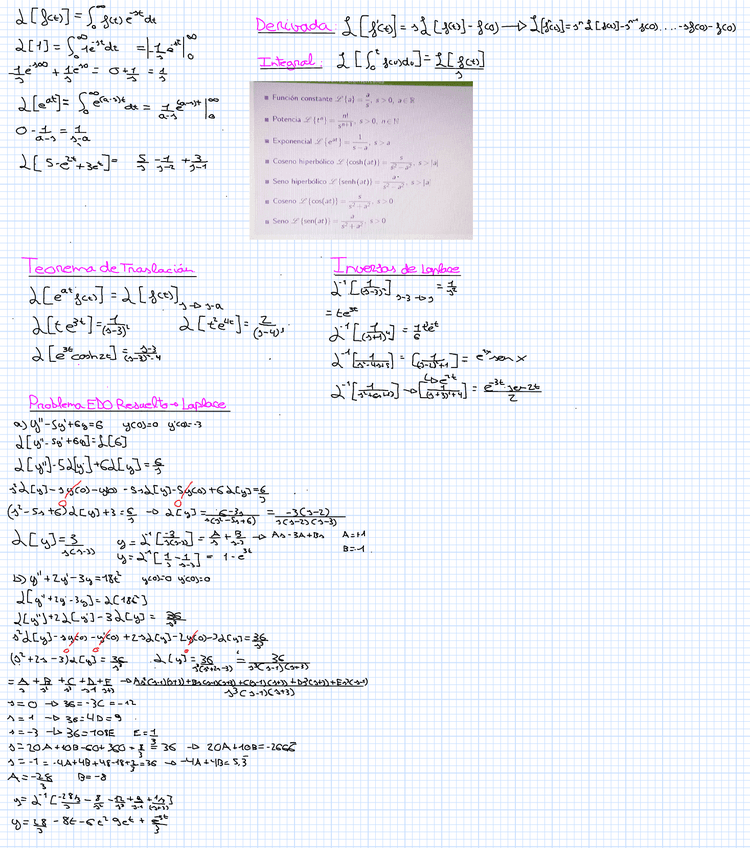 ℒ[f(t)] = ∫₀^∞ f(t) e^-st dt
ℒ[1] = ∫₀^∞ 1e^-st dt = |-1/s e^-st|₀^∞
1/s e^-s∞ + 1/s e^-s0 = 0 + 1/s = 1/s
ℒ[e^at] = ∫₀^∞ e^(a-s)t dt = 1/(a-s) e^(a-s)t |₀^∞
0 - 1/(a-s) = 1/(s-a)
ℒ[5-e^2t+3e^t] = 5/s - 1/(s-2) + 3/(s-1)
Derivada: ℒ[f'(t)] = sℒ[f(t)] - f(0) → ℒ[f(t)] = s^n ℒ[f(t)] - s^n-1 f(0) .... - sf(0) - f(0)
Integral: ℒ[∫₀^t f(u)du] = ℒ[f(t)]/s
Función constante ℒ{a} = a/s, s > 0, a ∈ ℝ
Potencia ℒ{t^n} = n!/s^(n+1), s > 0, n ∈ ℕ
Exponencial ℒ{e^at} = 1/(s-a), s > a
Coseno hiperbólico ℒ{cosh(at)} = s/(s²-a²), s > |a|
Seno hiperbólico ℒ{senh(at)} = a/(s²-a²), s > |a|
Coseno ℒ{cos(at)} = s/(s²+a²), s > 0
Seno ℒ{sen(at)} = a/(s²+a²), s > 0
Teorema de Traslación
ℒ[e^at f(t)] = ℒ[f(t)] s→s-a
ℒ[te^3t] = 1/(s-3)² ℒ[t²e^4t] = 2/(s-4)³
ℒ[e^3t cosh2t] = (s-3)/((s-3)²-4)
Inversas de Laplace
ℒ⁻¹[1/(s-3)²] s-3→s = 1/s²
= te^3t
ℒ⁻¹[1/(s+1)⁴] = 1/6 t³e^-t
ℒ⁻¹[1/(s²-4s+5)] = [1/((s-2)²+1)] = e^2x sen x
ℒ⁻¹ → [1/((s+3)²+4)] = e^-3t sen 2t / 2
Problema EDO Resuelto → Laplace
a) y''-5y'+6y=6 y(0)=0 y'(0)=-3
ℒ[y''-5y'+6y] = ℒ[6]
ℒ[y'']-5ℒ[y']+6ℒ[y] = 6/s
s²ℒ[y]-sy(0)-y(0)-5sℒ[y]-5y(0)+6ℒ[y] = 6/s
0 0
(s²-5s+6)ℒ[y]+3 = 6/s → ℒ[y] = (6-3s)/(s(s²-5s+6)) = -3(s-2)/(s(s-2)(s-3))
ℒ[y] = 3/(s(s-3)) y = ℒ⁻¹[-3/(s(s-3))] = A/s + B/(s-3) → As-3A+Bs A=+1
y = ℒ⁻¹[1/s - 1/(s-3)] = 1-e^3t B=-1
b) y''+2y'-3y=18t² y(0)=0 y'(0)=0
ℒ[y''+2y'-3y] = ℒ[18t²]
ℒ[y'']+2ℒ[y']-3ℒ[y] = 36/s³
s²ℒ[y]-sy(0)-y'(0)+2sℒ[y]-2y(0)-3ℒ[y] = 36/s³
0 0 0
(s²+2s-3)ℒ[y] = 36/s³ ℒ[y] = 36/(s³(s²+2s-3)) = 36/(s³(s-1)(s+3))
= A/s + B/s² + C/s³ + D/(s-1) + E/(s+3) → (As²(s-1)(s+3)+Bs(s-1)(s+3)+C(s-1)(s+3)+Ds³(s+3)+Es³(s-1))/(s³(s-1)(s+3))
s=0 → 36=-3C=-12
s=1 → 36=4D=9
s=-3 → 36=108E E=1/3
= 36 → 20A+10B=-266,6
s=-1 = -4A+4B+48-18+2/3=36 → -4A+4B=5,3
A=-28/3 B=-8